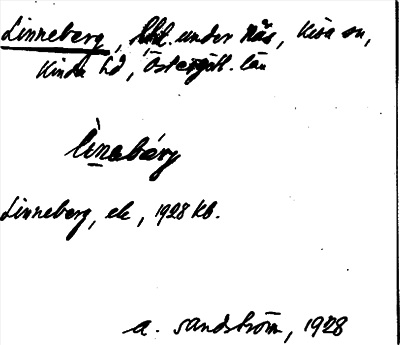 Linneberg, lht. under Näs, Kisa sn,
Kinda hd, Östergötl. län
lìnabárg
Linneberg, ek, 1928 Kb.
A. Sandström, 1928